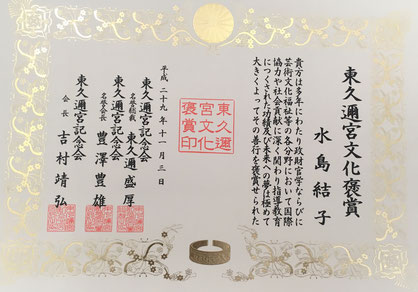 東久邇宮文化褒賞
水島結子
貴方は多年にわたり政財官学ならびに
芸術文化福祉等の各分野において国際
協力や社会貢献に深く関わり指導教育
につくされた功績及び未来への夢は極めて
大きくよってその善行を褒賞せられた
東久邇
宮文化
褒賞印
平成二十九年十一月三日
東久邇宮記念会
名誉総裁 東久邇盛厚
東久邇宮記念会
名誉会長 豊澤豊雄
東久邇宮記念会
会長 吉村靖弘